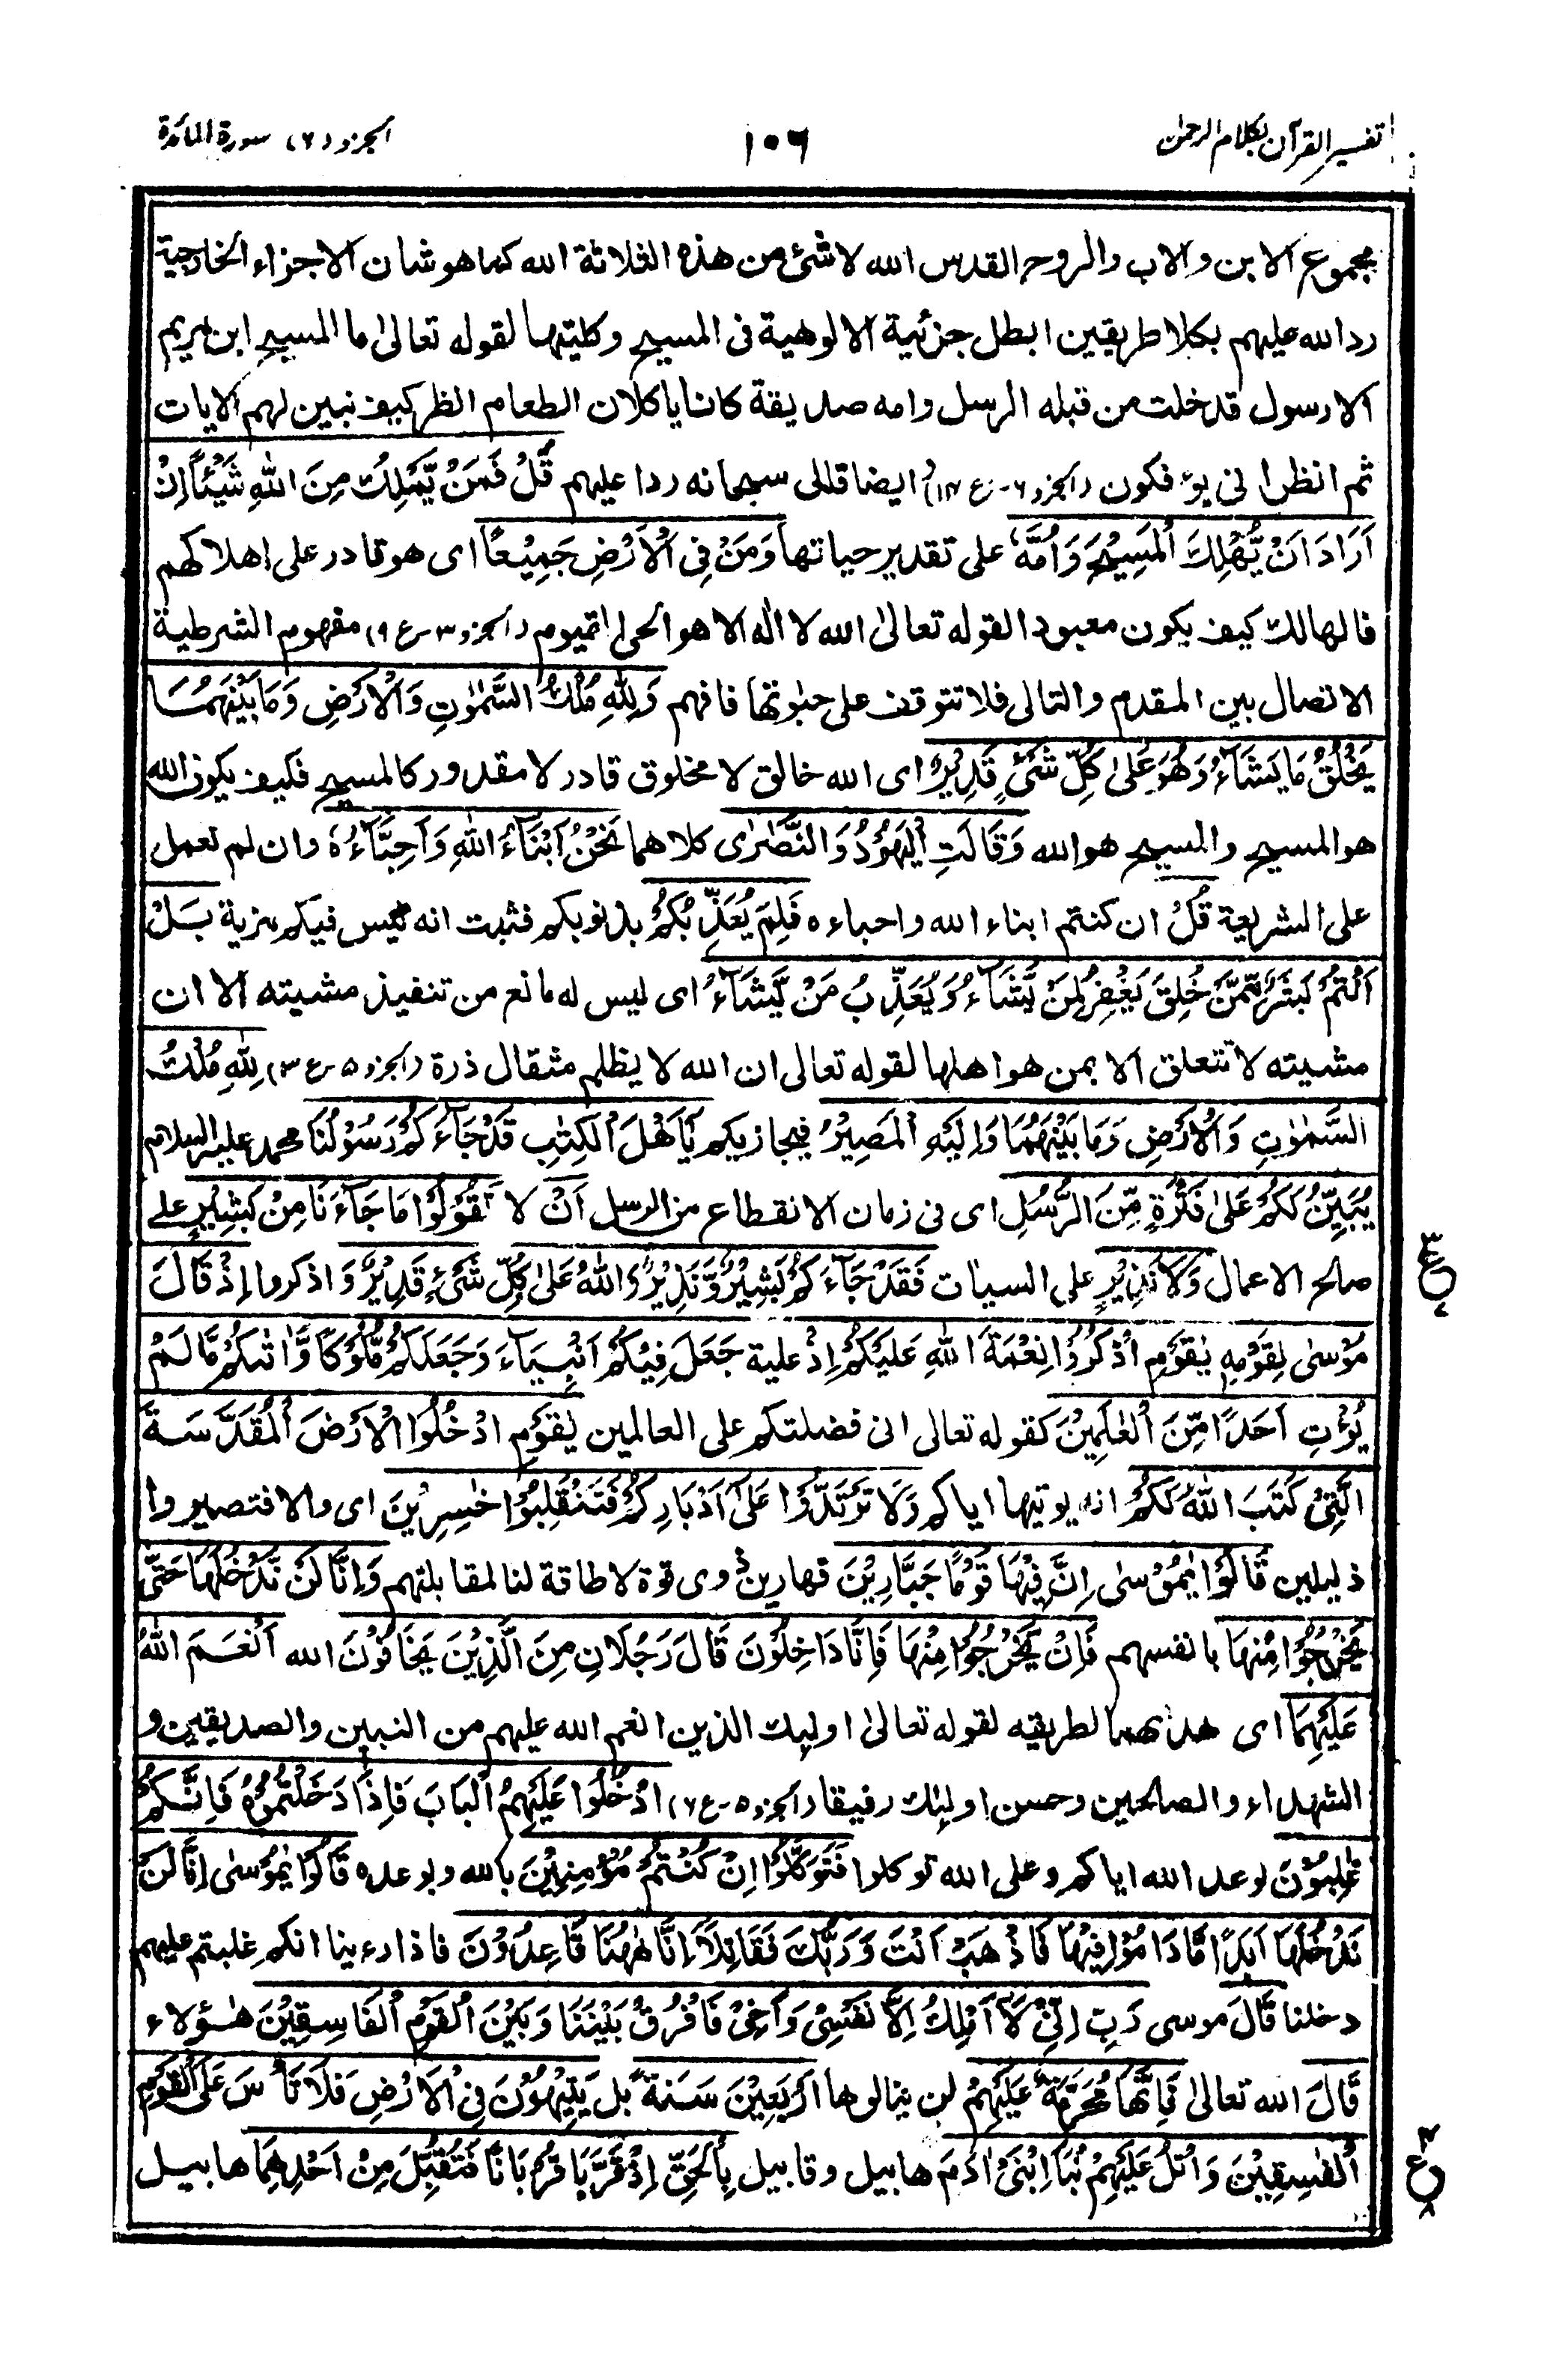 تفسیر القرآن بکلام الرحمٰن
۱۰۶
الجزو (۶) سورة المائدة
مجموع الابن والاب والروح القدس الله لا شئ من هذه الثلاثة الله كما هو شان الاجزاء الخارجية
رد الله عليهم بكلا طريقين ابطل جزئية الالوهية فى المسيح وكليتها لقوله تعالىٰ ما المسيح ابن مريم
الا رسول قد خلت من قبله الرسل وامه صديقة كانا ياكلان الطعام انظر كيف نبين لهم الايات
ثم انظر انى يؤفكون (الجزو ۶-ع ۱۴) ايضا قال سبحانه ردا عليهم قُلْ فَمَنْ يَّمْلِكُ مِنَ اللّٰهِ شَيْئًا اِنْ
اَرَادَ اَنْ يُّهْلِكَ الْمَسِيْحَ وَاُمَّهٗ على تقدير حياتها وَمَنْ فِى الْاَرْضِ جَمِيْعًا اى هو قادر على اهلاكهم
فالهالك كيف يكون معبودا لقوله تعالىٰ الله لا اله الا هو الحى القيوم (الجزو ۳-ع ۹) مفهوم الشرطية
الاتصال بين المقدم والتالى فلا تتوقف على فافهم وَلِلّٰهِ مُلْكُ السَّمٰوٰتِ وَالْاَرْضِ وَمَا بَيْنَهُمَا
يَخْلُقُ مَا يَشَآءُ وَهُوَ عَلٰى كُلِّ شَىْءٍ قَدِيْرٌ اى الله خالق لا مخلوق قادر لا مقدور كالمسيح فكيف يكون الله
هو المسيح والمسيح هو الله وَقَالَتِ الْيَهُوْدُ وَالنَّصٰرٰى كلاهما نَحْنُ اَبْنَآءُ اللّٰهِ وَاَحِبَّآءُهٗ وان لم نعمل
على الشريعة قُلْ ان كنتم ابناء الله واحباءه فَلِمَ يُعَذِّبُكُمْ بذنوبكم فثبت انه ليس فيكم مزية بَلْ
اَنْتُمْ بَشَرٌ مِّمَّنْ خَلَقَ يَغْفِرُ لِمَنْ يَّشَآءُ وَيُعَذِّبُ مَنْ يَّشَآءُ اى ليس له مانع من تنفيذ مشيته الا ان
مشيته لا تتعلق الا بمن هو اهلها لقوله تعالى ان الله لا يظلم مثقال ذرة (الجزو ۵-ع ۳) لِلّٰهِ مُلْكُ
السَّمٰوٰتِ وَالْاَرْضِ وَمَا بَيْنَهُمَا وَاِلَيْهِ الْمَصِيْرُ فيجازيكم يٰٓاَهْلَ الْكِتٰبِ قَدْ جَآءَكُمْ رَسُوْلُنَا محمد عليه السلام
يُبَيِّنُ لَكُمْ عَلٰى فَتْرَةٍ مِّنَ الرُّسُلِ اى فى زمان الانقطاع من الرسل اَنْ لا تَقُوْلُوْا مَا جَآءَنَا مِنْ بَشِيْرٍ على
صالح الاعمال وَلَا نَذِيْرٍ على السيات فَقَدْ جَآءَكُمْ بَشِيْرٌ وَّنَذِيْرٌ وَاللّٰهُ عَلٰى كُلِّ شَىْءٍ قَدِيْرٌ وَ اذكروا اِذْ قَالَ
مُوْسٰى لِقَوْمِهٖ يٰقَوْمِ اذْكُرُوْا نِعْمَةَ اللّٰهِ عَلَيْكُمْ اِذْ علية جَعَلَ فِيْكُمْ اَنْبِيَآءَ وَجَعَلَكُمْ مُّلُوْكًا وَّاٰتٰىكُمْ مَّا لَمْ
يُؤْتِ اَحَدًا مِّنَ الْعٰلَمِيْنَ كقوله تعالى انى فضلتكم على العالمين يٰقَوْمِ ادْخُلُوا الْاَرْضَ الْمُقَدَّسَةَ
الَّتِىْ كَتَبَ اللّٰهُ لَكُمْ انه يوتيها اياكم وَلَا تَرْتَدُّوْا عَلٰٓى اَدْبَارِكُمْ فَتَنْقَلِبُوْا خٰسِرِيْنَ اى والا فتصيروا
ذليلين قَالُوْا يٰمُوْسٰى اِنَّ فِيْهَا قَوْمًا جَبَّارِيْنَ قهارين ذوى قوة لا طاقة لنا لمقابلتهم وَاِنَّا لَنْ نَّدْخُلَهَا حَتّٰى
يَخْرُجُوْا مِنْهَا بانفسهم فَاِنْ يَّخْرُجُوْا مِنْهَا فَاِنَّا دَاخِلُوْنَ قَالَ رَجُلَانِ مِنَ الَّذِيْنَ يَخَافُوْنَ الله اَنْعَمَ اللّٰهُ
عَلَيْهِمَا اى هداهما لطريقه لقوله تعالىٰ اوليك الذين انعم الله عليهم من النبين والصديقين و
الشهداء والصالحين وحسن اوليك رفيقا (الجزو ۵-ع ۷) ادْخُلُوْا عَلَيْهِمُ الْبَابَ فَاِذَا دَخَلْتُمُوْهُ فَاِنَّكُمْ
غٰلِبُوْنَ لوعد الله اياكم وعلى الله توكلوا فَتَوَكَّلُوْا اِنْ كُنْتُمْ مُّؤْمِنِيْنَ بالله وبوعده قَالُوْا يٰمُوْسٰى اِنَّا لَنْ
نَدْخُلَهَا اَبَدًا مَّا دَامُوْا فِيْهَا فَاذْهَبْ اَنْتَ وَرَبُّكَ فَقَاتِلَآ اِنَّا هٰهُنَا قَاعِدُوْنَ فاذا رءينا انكم غلبتم عليهم
دخلنا قَالَ موسى رَبِّ اِنِّىْ لَآ اَمْلِكُ اِلَّا نَفْسِىْ وَاَخِىْ فَافْرُقْ بَيْنَنَا وَبَيْنَ الْقَوْمِ الْفَاسِقِيْنَ هٰؤلاء
قَالَ الله تعالىٰ فَاِنَّهَا مُحَرَّمَةٌ عَلَيْهِمْ لن ينالوها اَرْبَعِيْنَ سَنَةً بل يَتِيْهُوْنَ فِى الْاَرْضِ فَلَا تَاْسَ عَلَى الْقَوْمِ
الْفٰسِقِيْنَ وَاتْلُ عَلَيْهِمْ نَبَاَ ابْنَىْ اٰدَمَ هابيل وقابيل بِالْحَقِّ اِذْ قَرَّبَا قُرْبَانًا فَتُقُبِّلَ مِنْ اَحَدِهِمَا هابيل